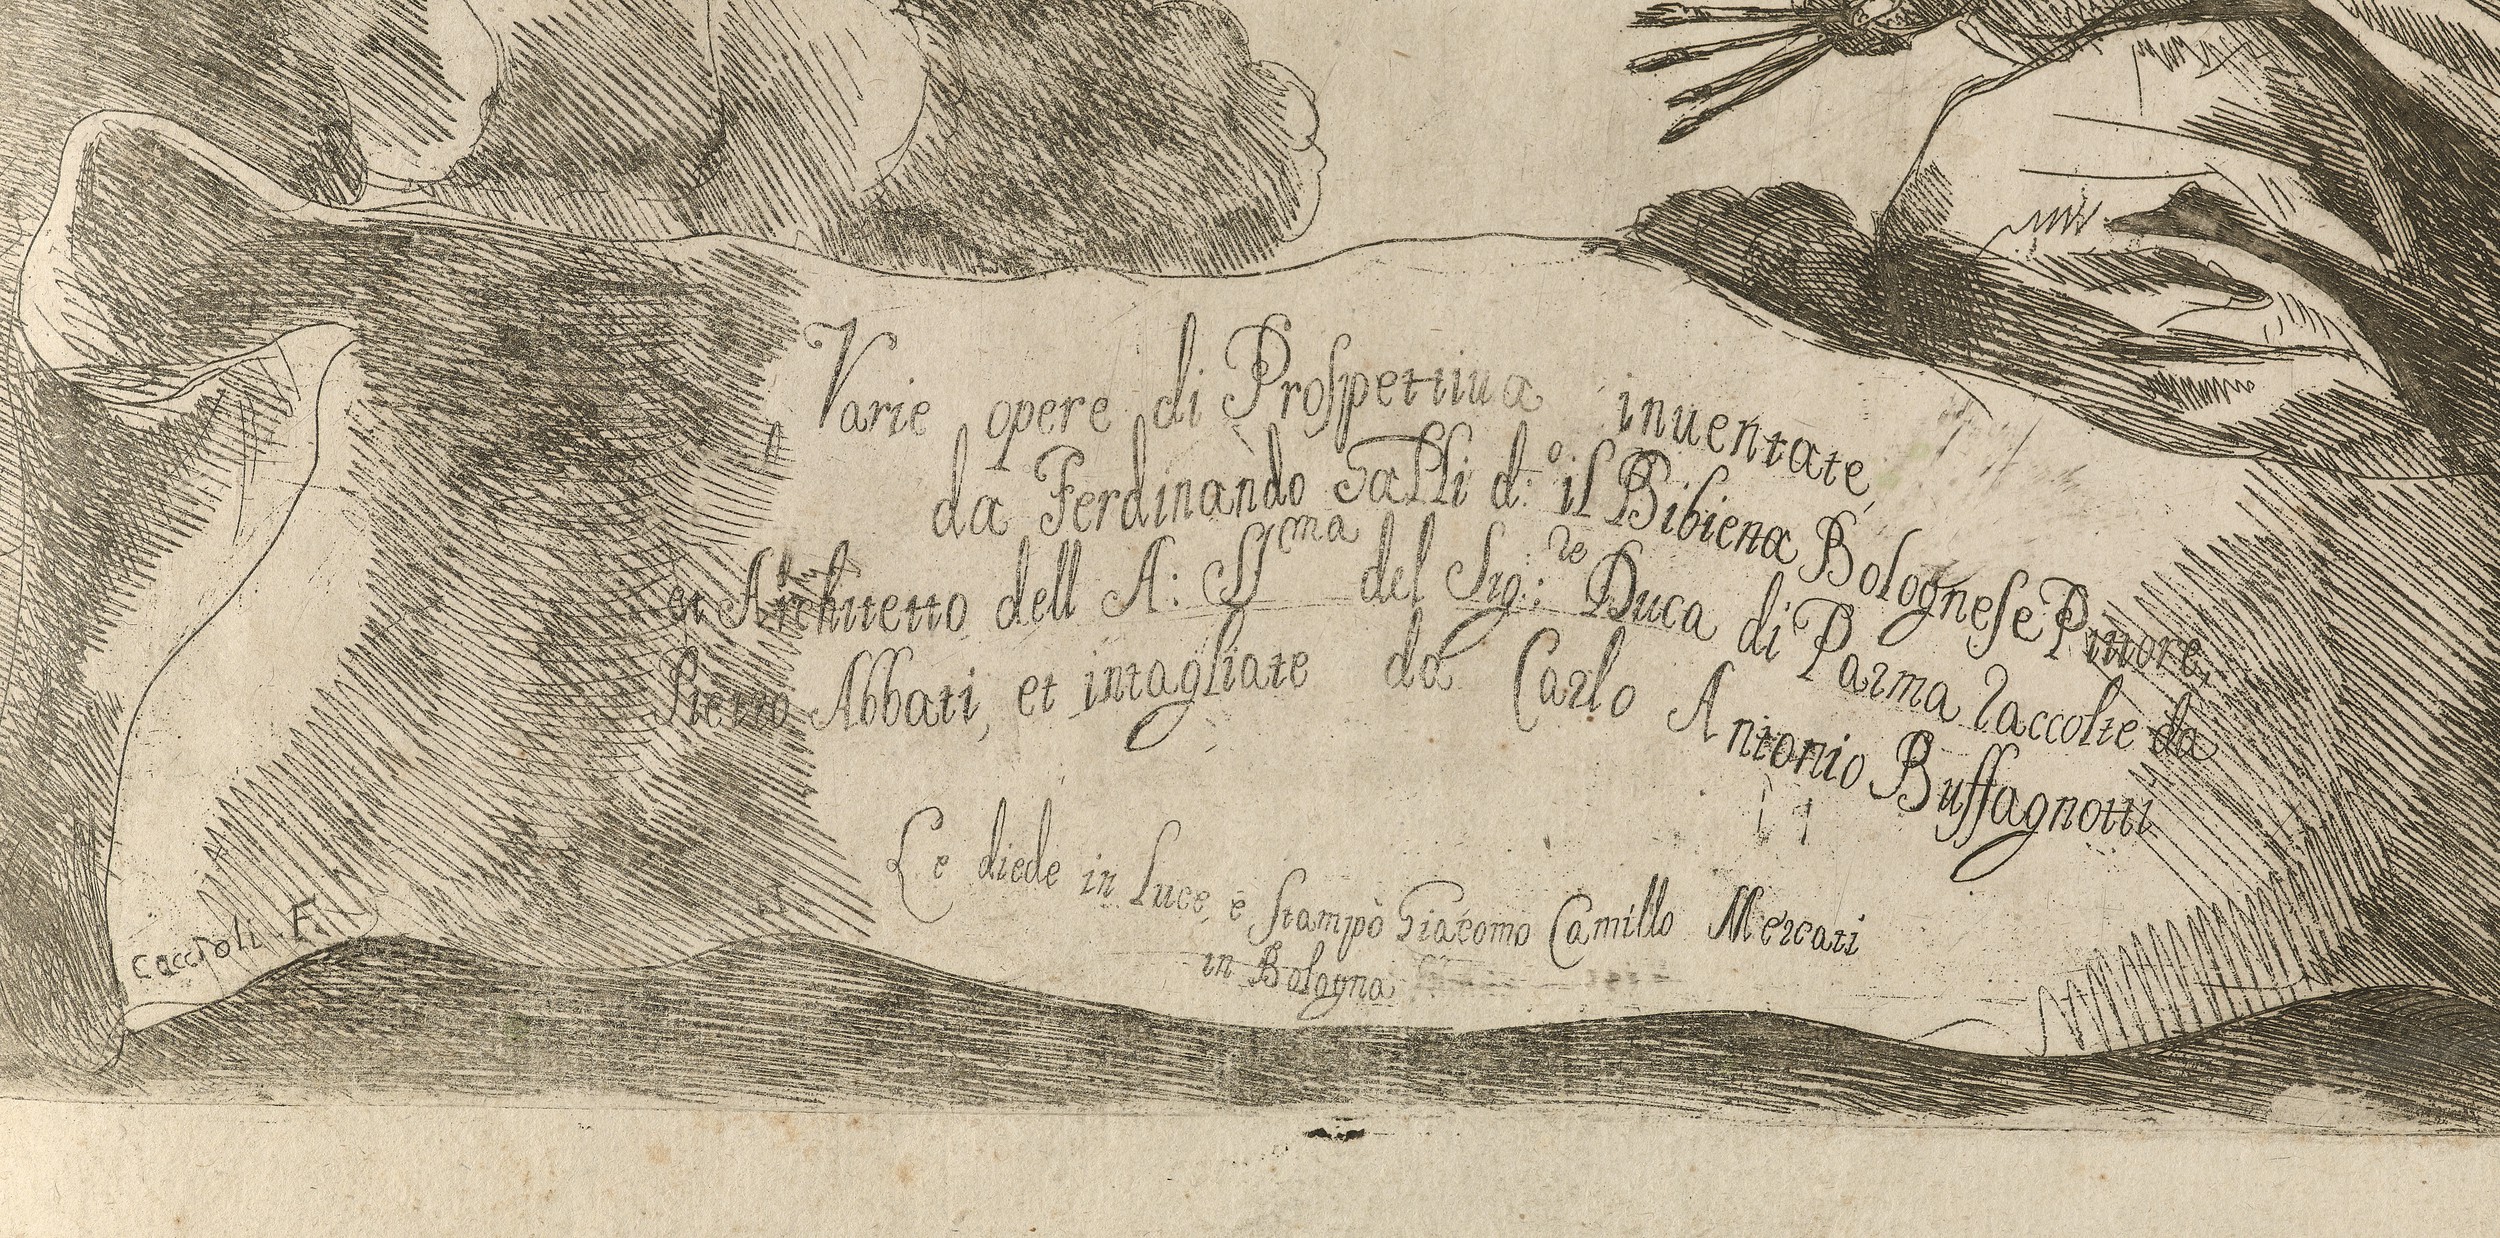 Varie opere di Prospettiua inuentate,
da Ferdinàndo Galli d:º il Bibiena Bolognese Pittore,
et Architetto dell A: Sma del Sig:re Duca di Parma raccolte da
Pietro Abbati, et intagliate da Carlo Antonio Buffagnotti
Le diede in Luce, e Stampò Giacomo Camillo Mercati
in Bologna
Caccioli. F.